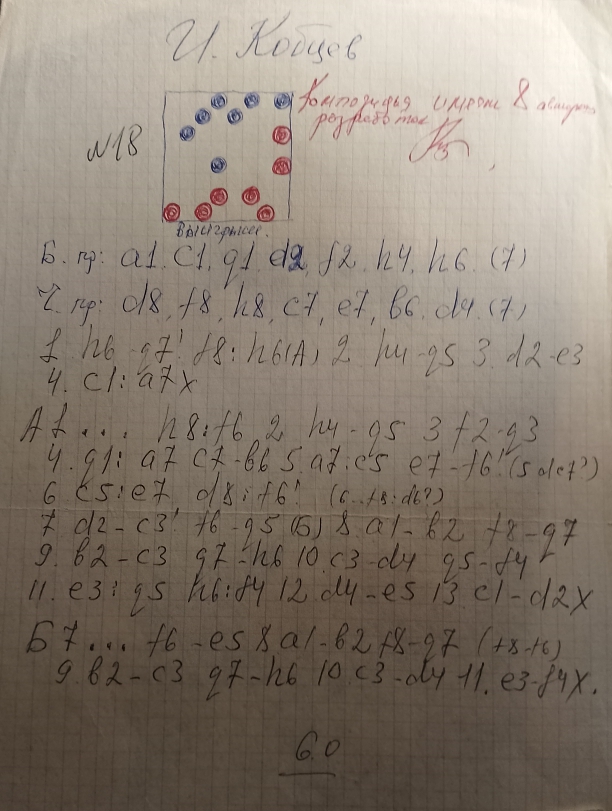 И. Кобцев
Композиция имеет 8 авторск
разработок
N18
Выигрыш.
Б. пр: a1. c1, g1. d2, f2. h4, h6. (7)
Ч. пр: d8, f8, h8, c7, e7, в6. d4. (7)
1. h6-g7! f8:h6(A) 2 h4-g5 3. d2-e3
4. c1:a7x
A1... h8:f6 2 h4-g5 3 f2-g3
4. g1:a7 c7-в6 5. a7:c5 e7-f6! (5 d8c7?)
6 c5:e7 d8:f6! (6...f8:d6?)
7 d2-c3! f6-g5 (Б) 8. a1-в2 f8-g7
9. в2-c3 g7-h6 10. c3-d4 g5-f4
11. e3:g5 h6:f4 12 d4-e5 13 c1-d2x
Б 7... f6-e5 8 a1-в2 f8-g7 (f8-f6)
9. в2-c3 g7-h6 10. c3-d4 11. e3-f4x.
6.0